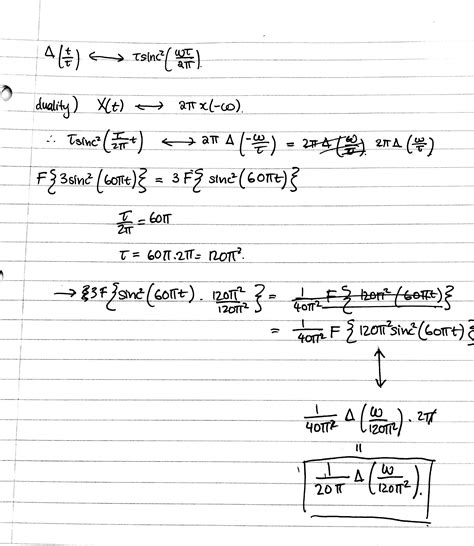 Δ(t/τ) ⟷ τsinc²(ωτ/2π).
duality) X(t) ⟷ 2πx(-ω).
∴ τsinc²(τ/2π t) ⟷ 2πΔ(-ω/τ) = 2πΔ(ω/τ)
F{3sinc²(60πt)} = 3F{sinc²(60πt)}
τ/2π = 60π
τ = 60π.2π = 120π².
→ 3F{sinc²(60πt) . 120π²/120π²} = 1/40π² F{120π²(60πt)}
= 1/40π² F{120π²sinc²(60πt)}
↕
1/40π² Δ(ω/120π²) . 2π
=
1/20π Δ(ω/120π²).